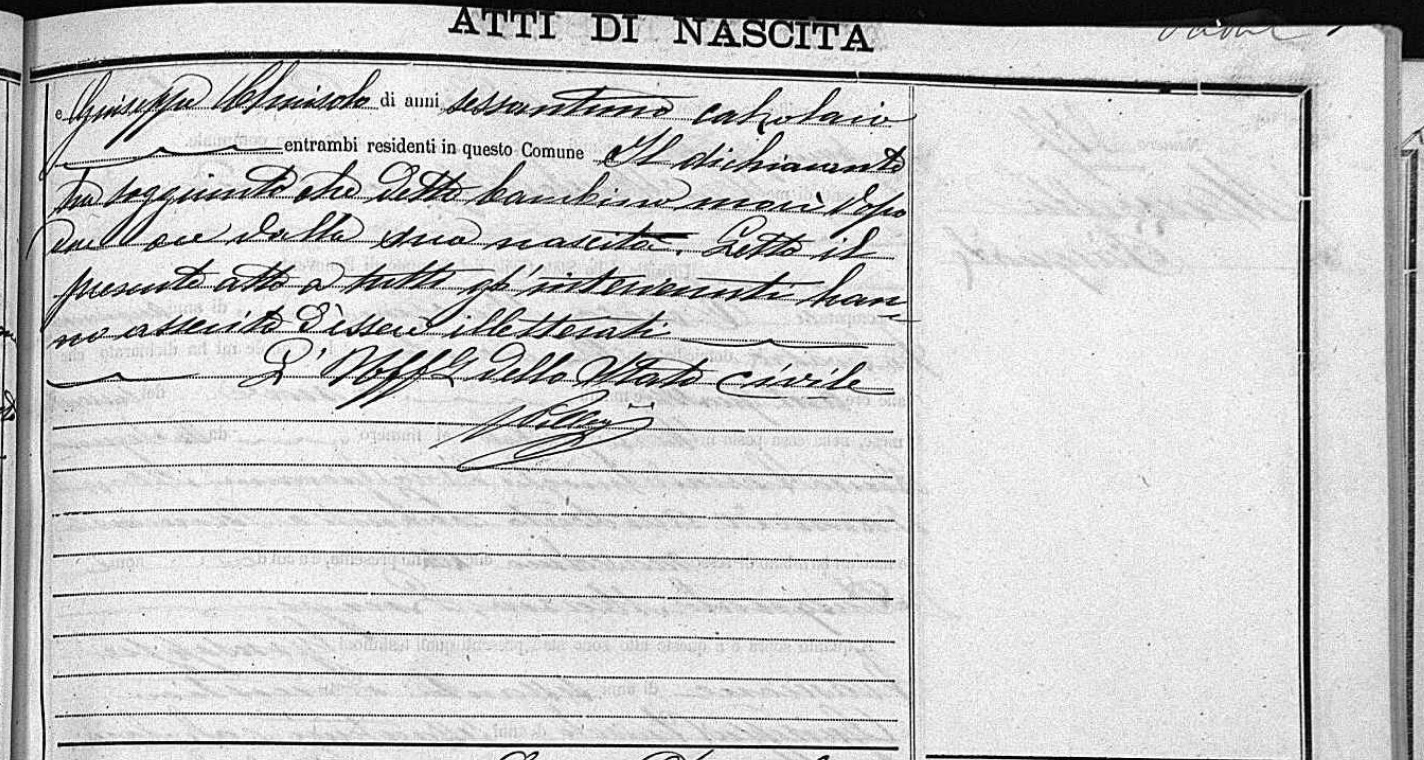 ATTI DI NASCITA
e Giuseppe di anni sessantuno calzolaio
entrambi residenti in questo Comune Il dichiarante
ha soggiunto che detto bambino morì dopo
due ore dalla sua nascita. Letto il
presente atto a tutti gl'intervenuti han=
no asserito d'essere illetterati
L'Uff.l dello Stato civile